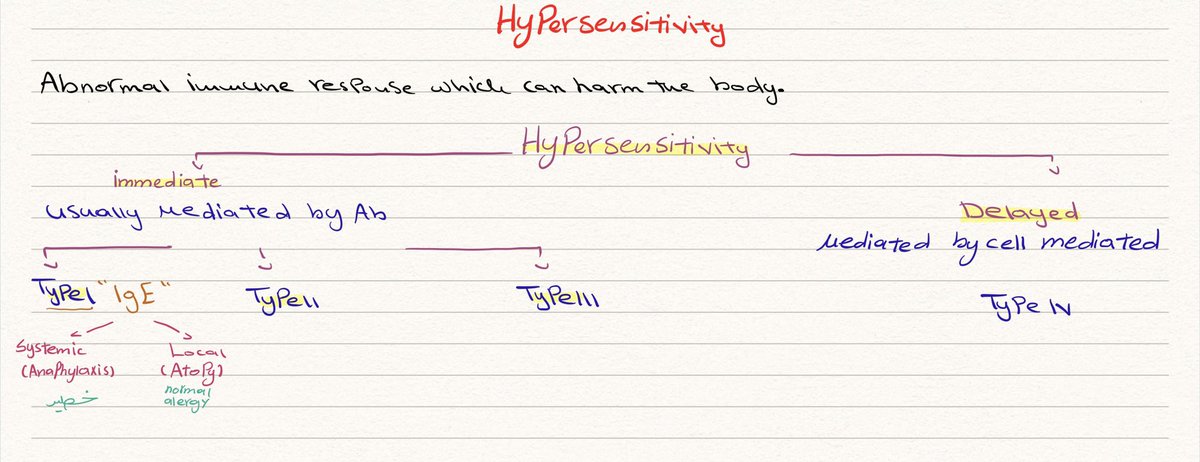 Hypersensitivity
Abnormal immune response which can harm the body.
Hypersensitivity
immediate
usually mediated by Ab
Delayed
Mediated by cell mediated
Type I "IgE"
Type II
Type III
Type IV
Systemic
(Anaphylaxis)
خطير
Local
(Atopy)
normal
alergy